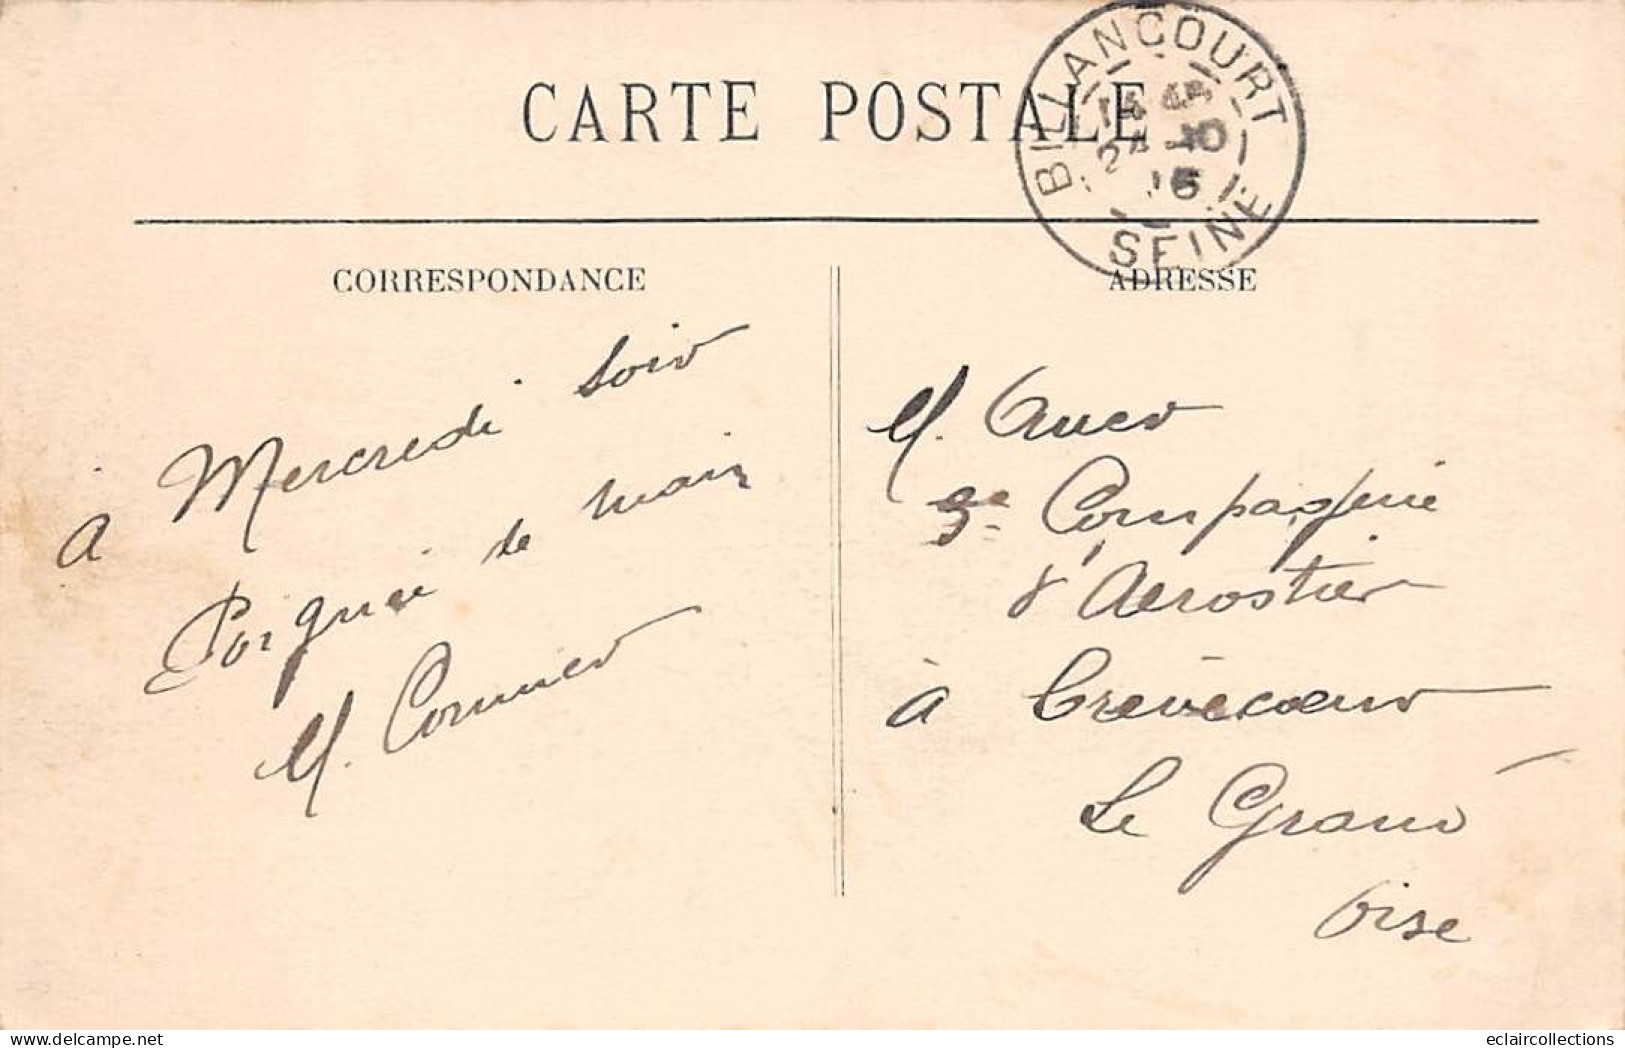 CARTE POSTALE
BILLANCOURT
14 45
24 -10
15
SEINE
CORRESPONDANCE
à Mercredi soir
Poignée de main
M. Cormier
ADRESSE
M.
3e Compagnie
d'Aerostier
à Crèvecoeur
Le Grand
Oise
eclaircollections